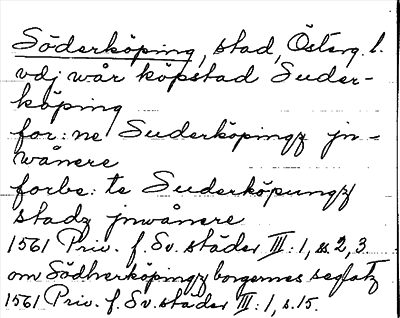 Söderköping, stad, Österg. l.
vdj wår köpstad Suder-
köping
for: ne Suderköpingz jn-
wånere
forbe: te Suderköpungz
stadz jnwånere
1561 Priv. f. Sv. städer III: 1, ss 2, 3
om Södherköpingz borgernes seglatz
1561 Priv. f. Sv. städer III: 1, s. 15.